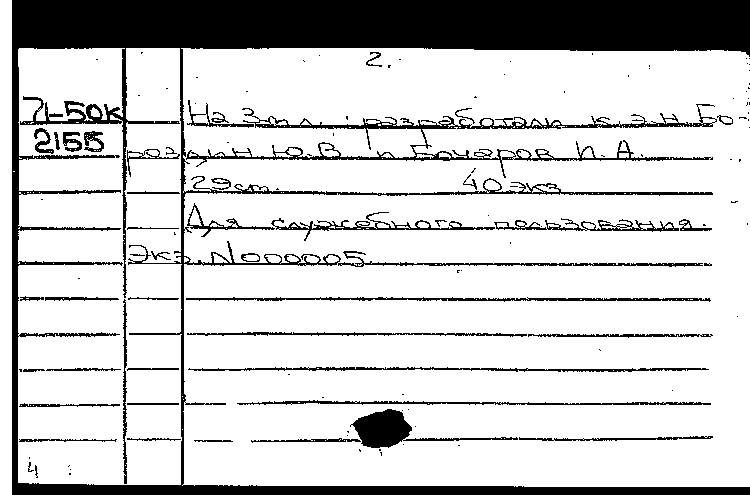 2.
71-50К На 3 т.л.: разработали к.э.н Бо-
2155 роздин Ю.В и Бочаров И.А.
29 ст. 40 экз
Для служебного пользования.
Экз. N000005.
4